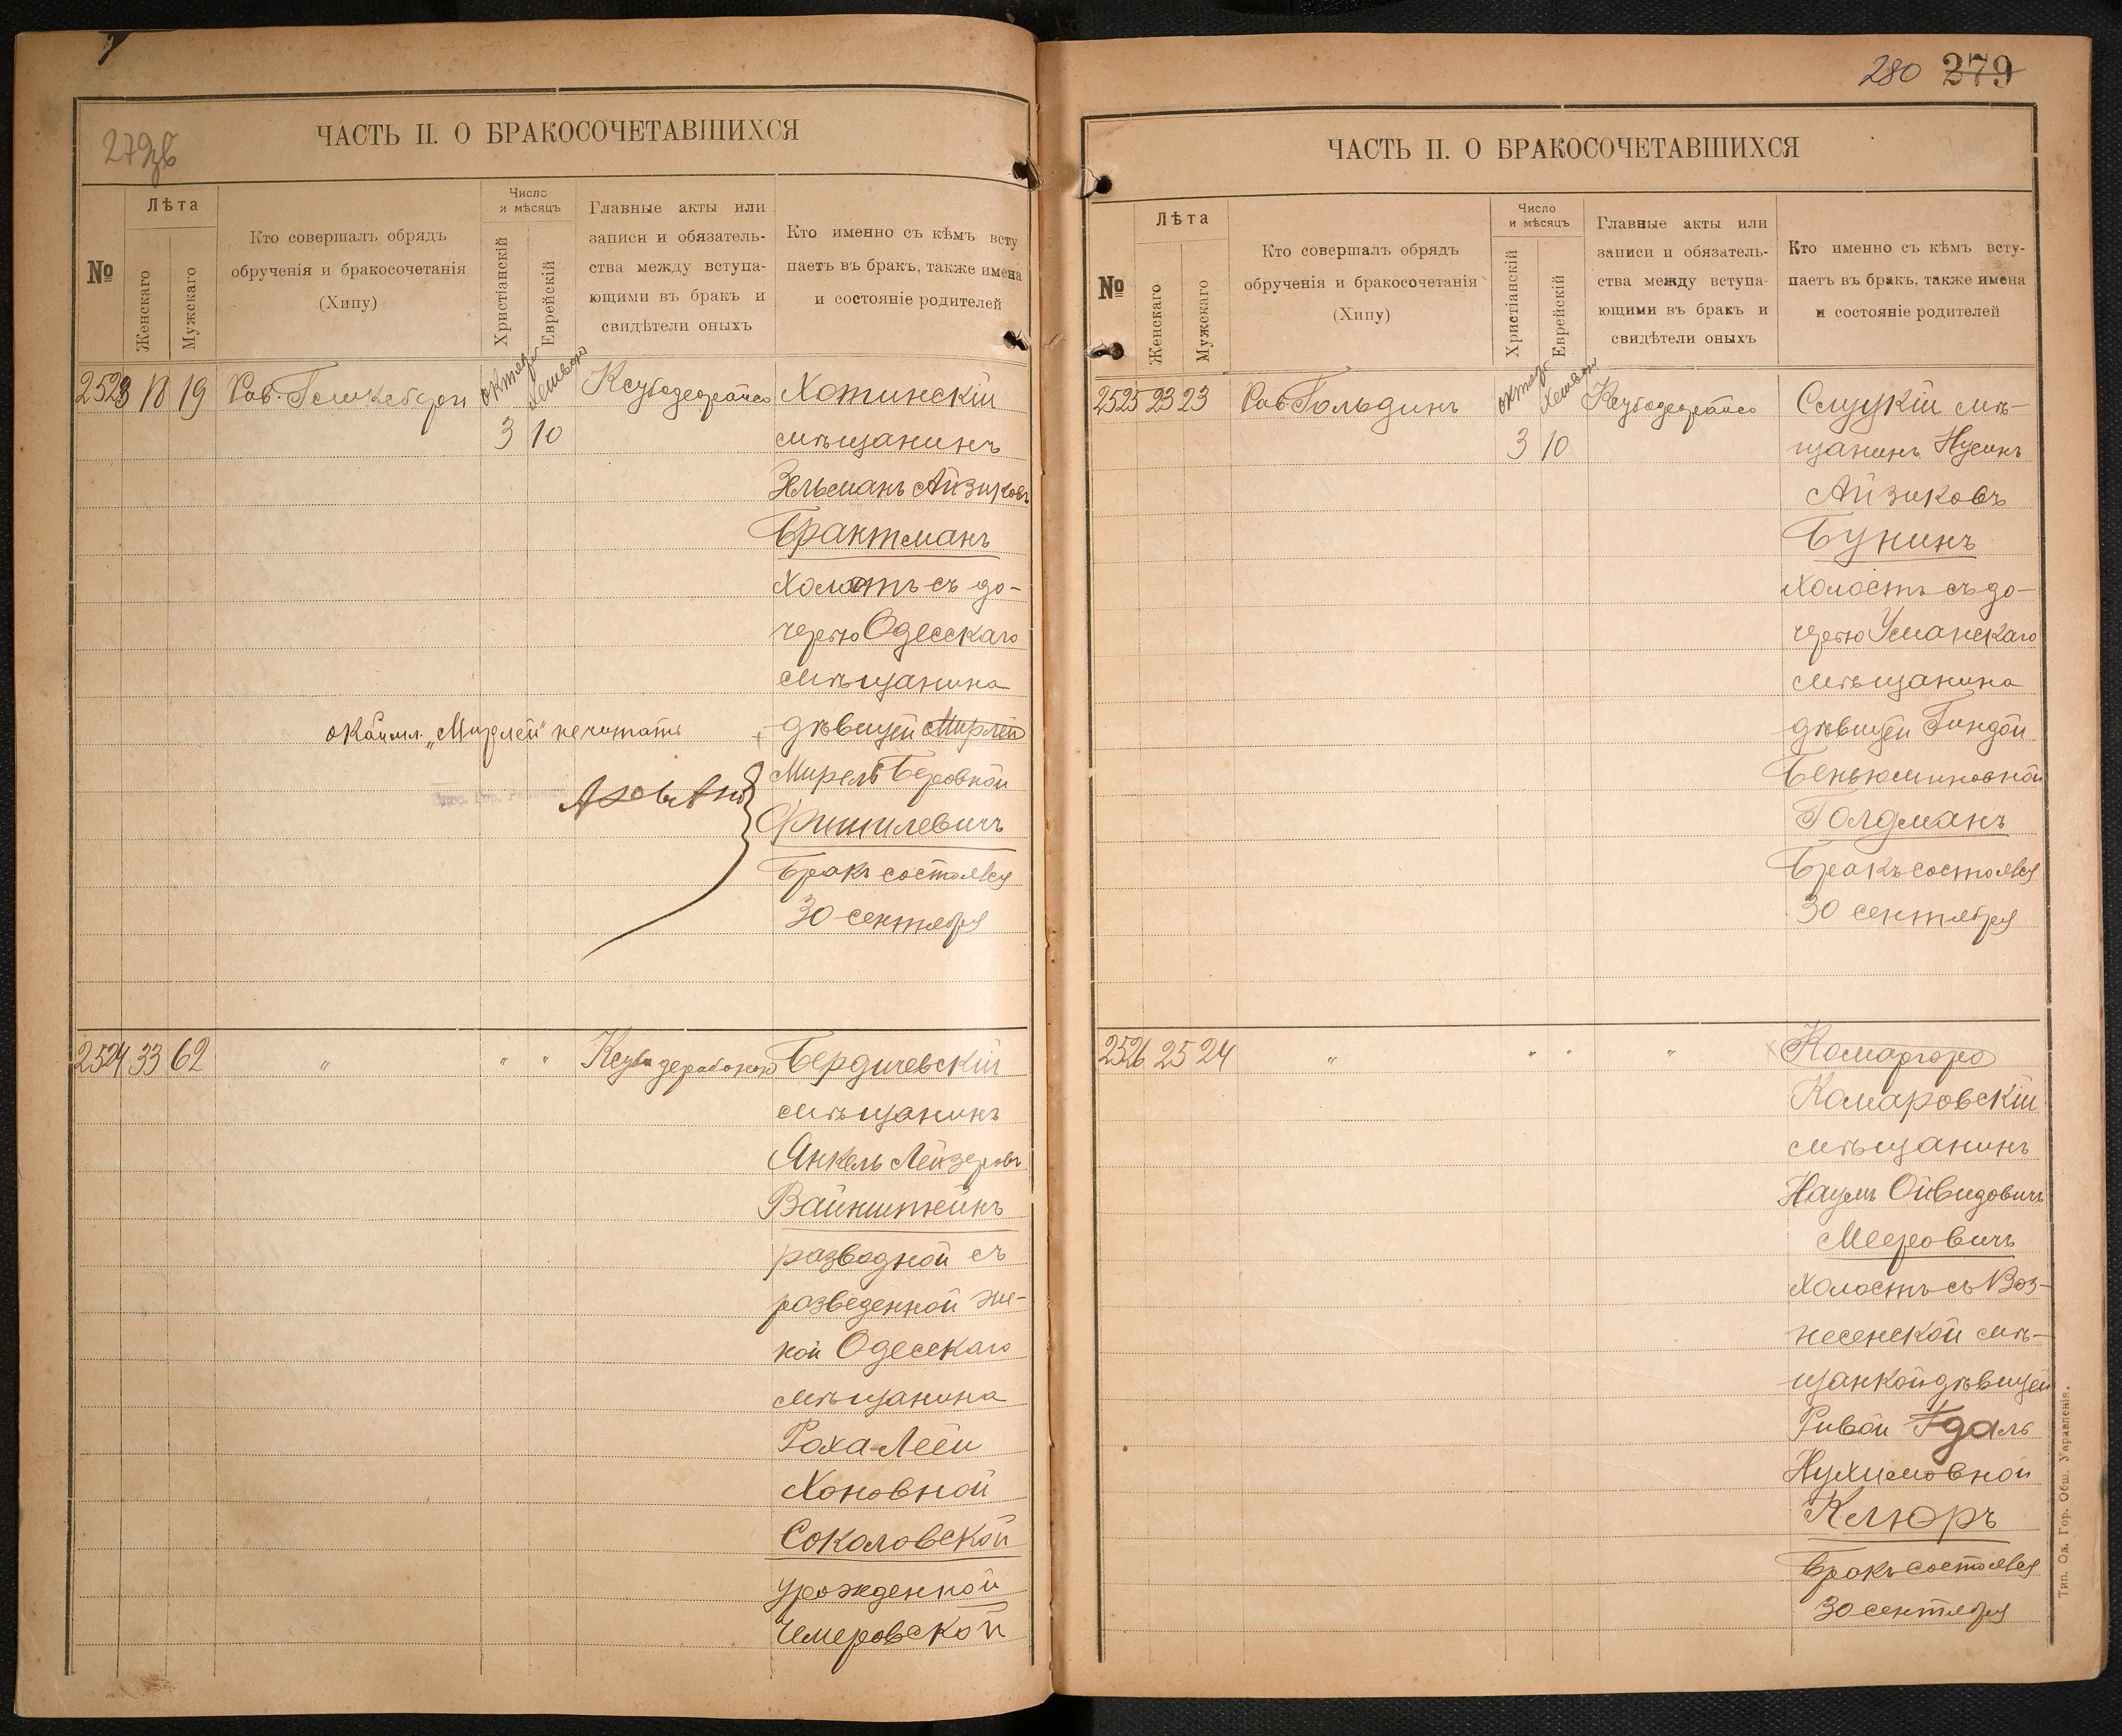 279зв
ЧАСТЬ II. О БРАКОСОЧЕТАВШИХСЯ
№
Лѣта
Женскаго
Мужскаго
Кто совершалъ обрядъ
обрученія и бракосочетанія
(Хипу)
Число
и мѣсяцъ
Христіанскій
Еврейскій
Главные акты или
записи и обязатель-
ства между вступа-
ющими въ бракъ и
свидѣтели оныхъ
Кто именно съ кѣмъ всту
паетъ въ бракъ, также имена
и состояніе родителей
2523 18 19 Рав. октяб Хешвон Хотинскій
3 10 мѣщанинъ
Зельманъ Айзиковъ
Брактманъ
холостъ съ до-
черью Одесскаго
мѣщанина
дѣвицей Мирлей
окаймл. „Мирлей" не читать
Мирель Беровной
Фишилевичъ
Бракъ состоялся
30 сентября
2524 33 62 " " " Бердичевскій
мѣщанинъ
Янкель Лейзеровъ
Вайнштейнъ
разводной съ
разведенной же-
ной Одесскаго
мѣщанина
Роха-Леей
Хоновной
Соколовской
урожденной
Чемеровской
280 379
ЧАСТЬ II. О БРАКОСОЧЕТАВШИХСЯ
№
Лѣта
Женскаго
Мужскаго
Кто совершалъ обрядъ
обрученія и бракосочетанія
(Хипу)
Число
и мѣсяцъ
Христіанскій
Еврейскій
Главные акты или
записи и обязатель-
ства между вступа-
ющими въ бракъ и
свидѣтели оныхъ
Кто именно съ кѣмъ всту-
паетъ въ бракъ, также имена
и состояніе родителей
2525 23 23 Рав Гольдинъ октяб Хешвон Слуцкій мѣ-
3 10 щанинъ Нусинъ
Айзиковъ
Бунинъ
холостъ съ до-
черью Уманскаго
мѣщанина
дѣвицей Гиндой
Беньюминовной
Голдманъ
Бракъ состоялся
30 сентября
2526 25 24 " " " " Комаргоро
Комаровскій
мѣщанинъ
Наумъ Ойвидовичъ
Мееровичъ
холостъ съ Воз-
несенской мѣ-
щанкой дѣвицей
Ривой Гдаль
Нухимовной
Клюръ
Бракъ состоялся
30 сентября
Тип. Од. Гор. Общ. Управленія.